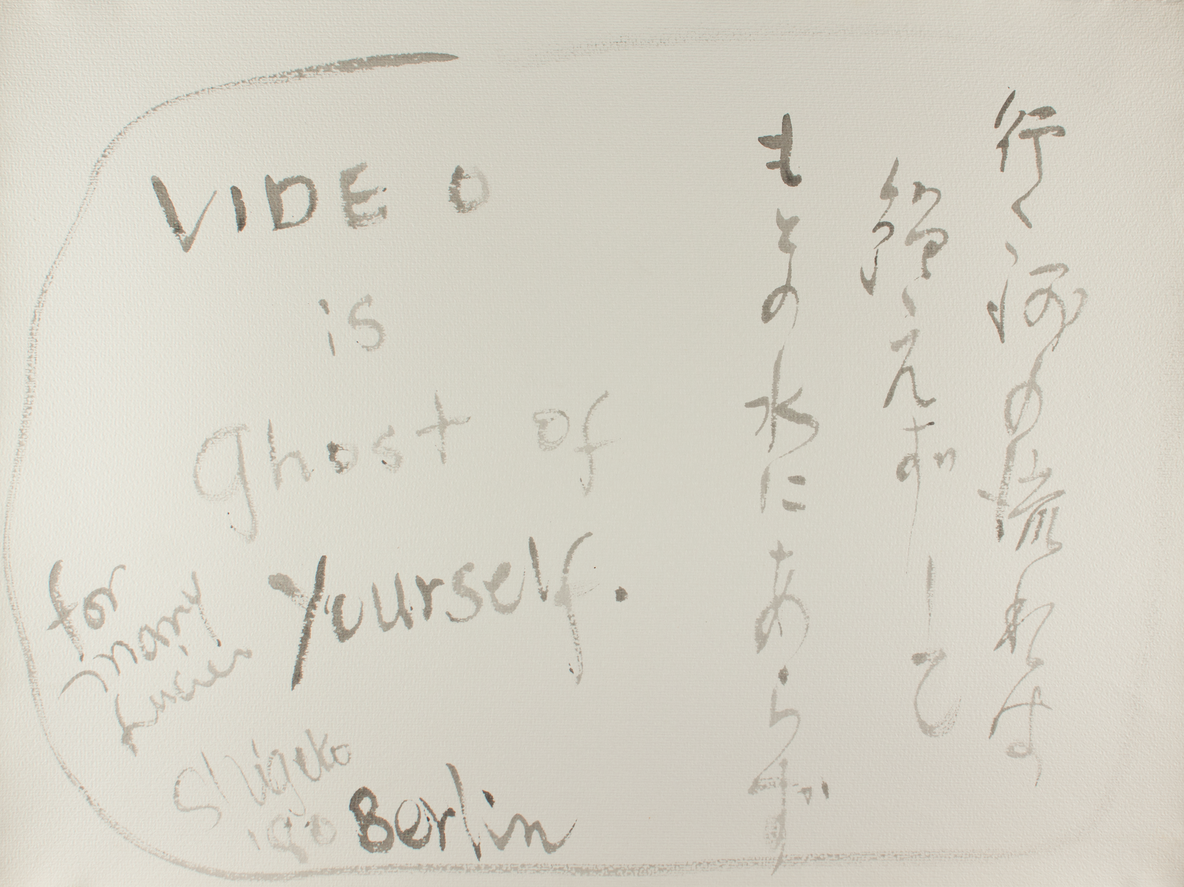 VIDEO
is
Ghost of
Yourself.
for
mary
Lucier
Shigeko
'80 Berlin
行く河の流れは
絶えずして
もとの水にあらず